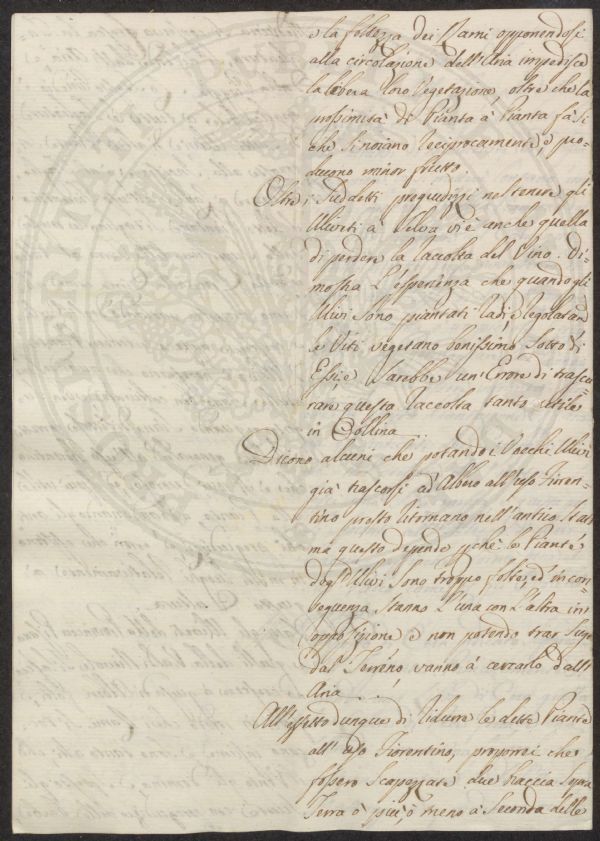 e la foltezza dei Rami opponendosi
alla circolazione dell'Aria impedisce
la libera loro Vegetazione, oltre che la
prossimità di Pianta à Pianta fà si
che si noiano reciprocamente, e pro-
ducono minor frutto.
Oltre i suddetti pregiudizzi nel tenere gli
Uliveti à Selva vi è anche quella
di perdere la raccolta del Vino. Di-
mostra L'esperienza che quando gli
Ulivi sono piantati radi, e regolati
le Viti vegetano benissimo sotto di
Essi, e sarebbe un'Errore di trascu
rare questa raccolta tanto utile
in Collina
Dicono alcuni che potando i Vecchi Ulivi
già trascorsi ad'Albero all'uso Fioren-
tino presto ritornano nell'antico stato
ma questo dipende perchè le Piante
degl'Ulivi sono troppo folte, ed in con
seguenza stanno L'una con L'altra in
opposizione e non potendo trar sugo
dal Terreno vanno à cercarlo dall'
Aria
All'effetto dunque di ridurre le dette Piante
all'uso Fiorentino, proporrei che
fossero scapezzate due braccia sopra
Terra ò più, ò meno à seconda delle